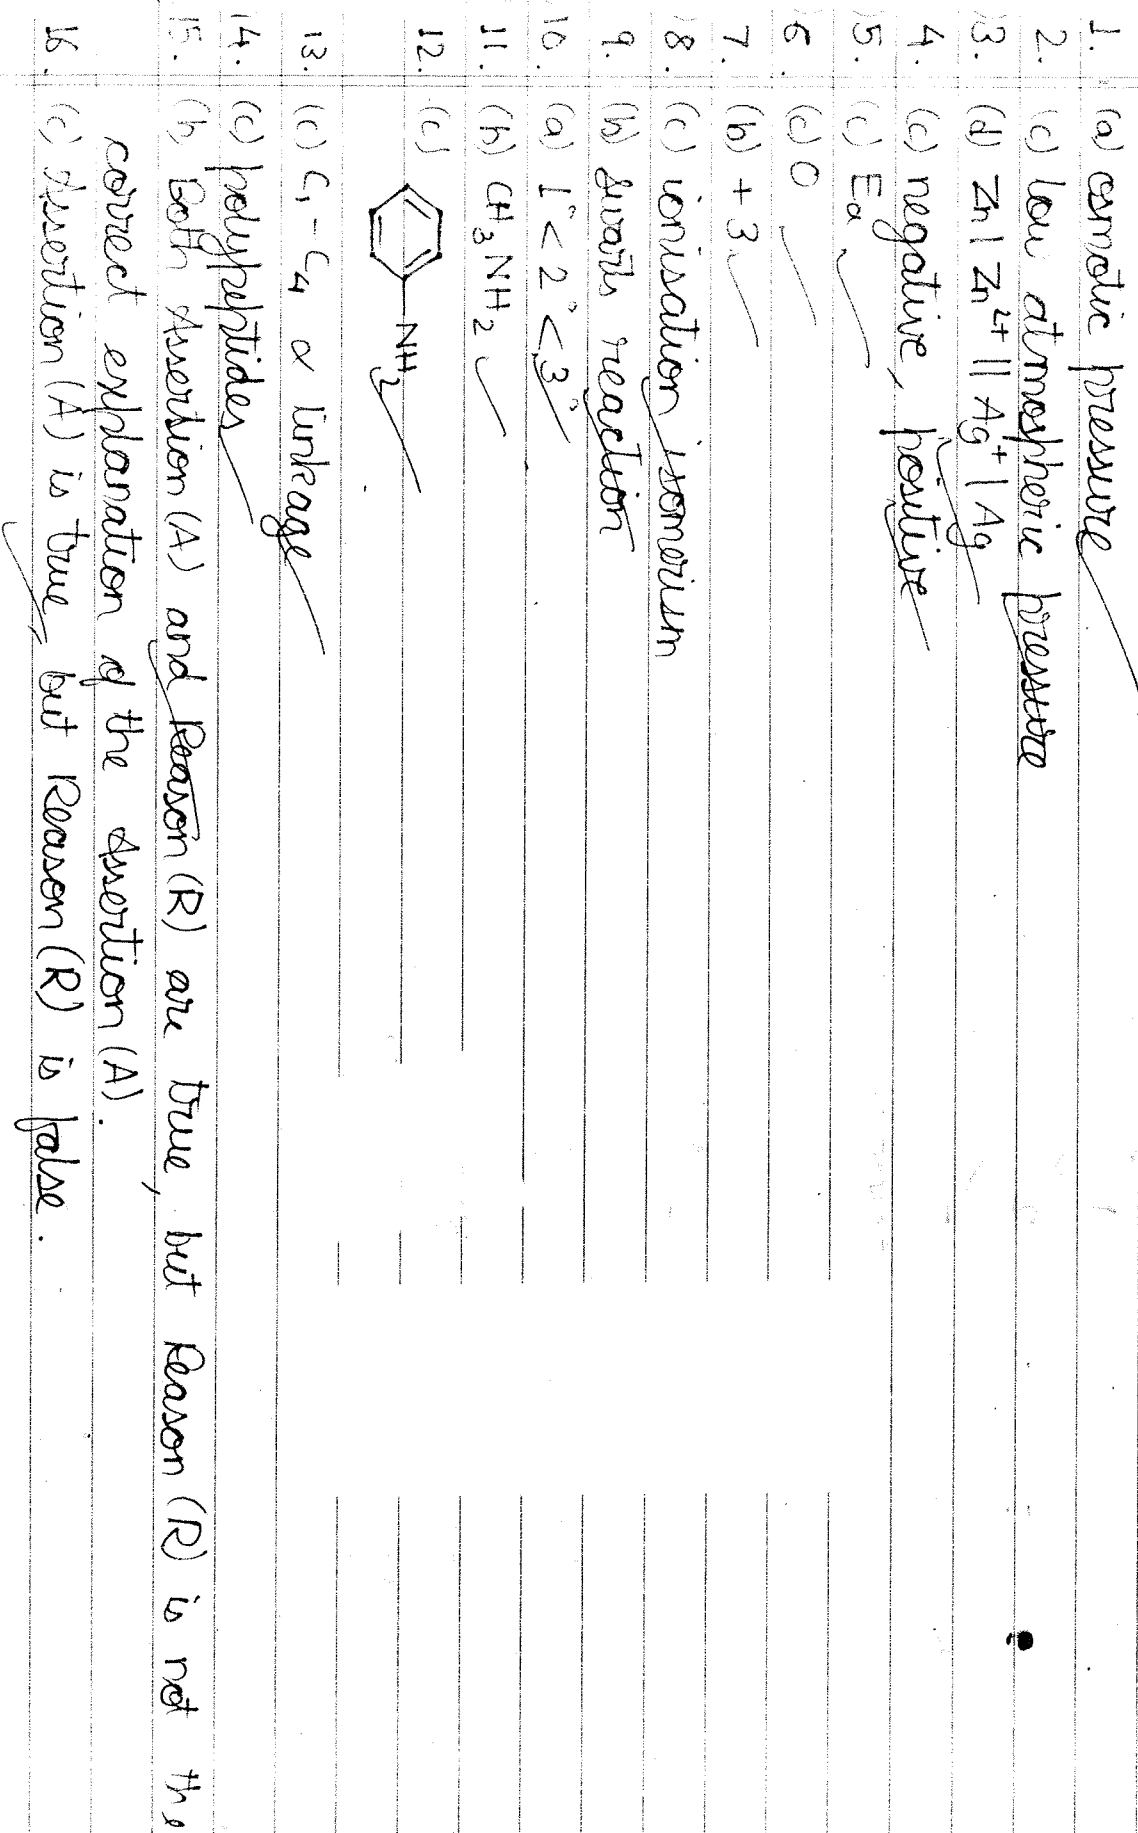 1. (a) osmotic pressure
2. (c) low atmospheric pressure
3. (d) Zn | Zn²⁺ || Ag⁺ | Ag
4. (c) negative, positive
5. (c) Ea
6. (c) O
7. (b) +3
8. (c) ionisation isomerism
9. (b) Swarts reaction
10. (a) 1° < 2° < 3°
11. (b) CH₃NH₂
12. (c)
NH₂
13. (c) C₁-C₄ α linkage
14. (c) polypeptides
15. (b) Both Assertion (A) and Reason (R) are true, but Reason (R) is not the
correct explanation of the Assertion (A).
16. (c) Assertion (A) is true, but Reason (R) is false.